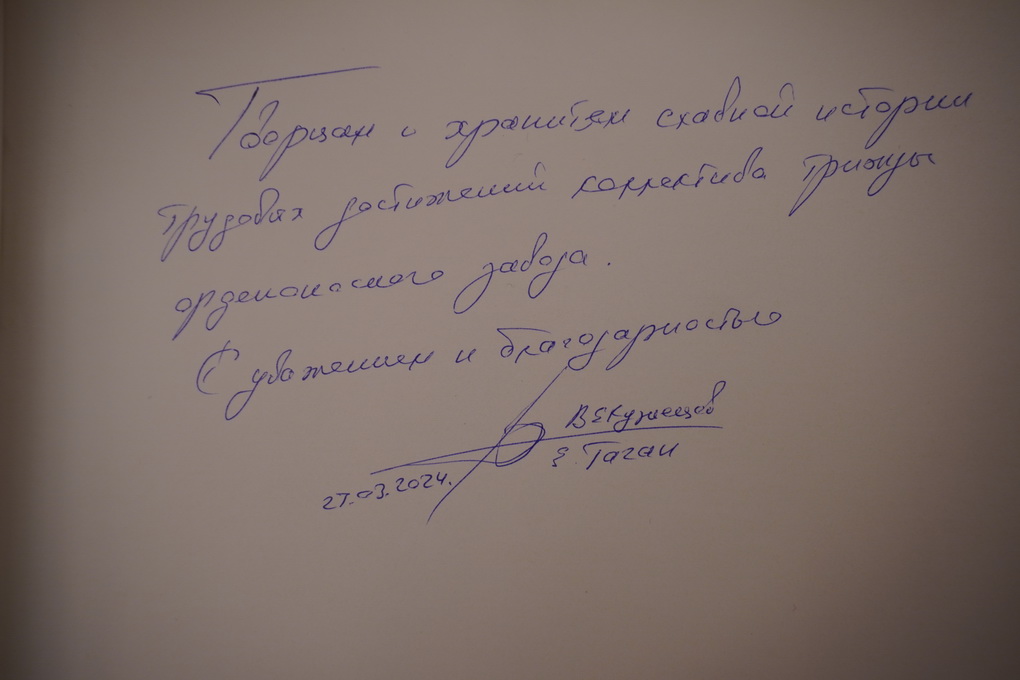 Творцам и хранителям славной истории
трудовых достижений коллектива трижды
орденоносного завода.
С уважением и благодарностью
В.Е. Кузнецов
г. Таган
27.03.2024.